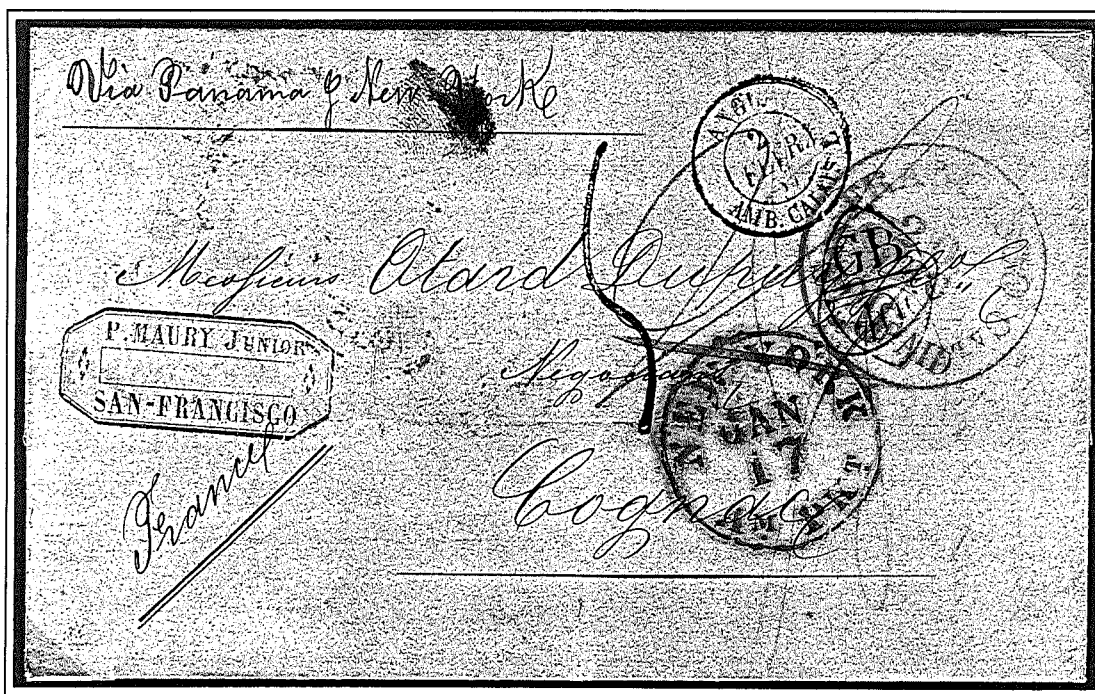 Via Panama & New York
ANGL.
2
FEVR.
AMB. CALAIS
Messieurs Otard Dupuy & Co"
GB
P. MAURY JUNIOR
SAN-FRANCISCO
NEW YORK
JAN
17
AM. PKT.
PAID
France
Cognac